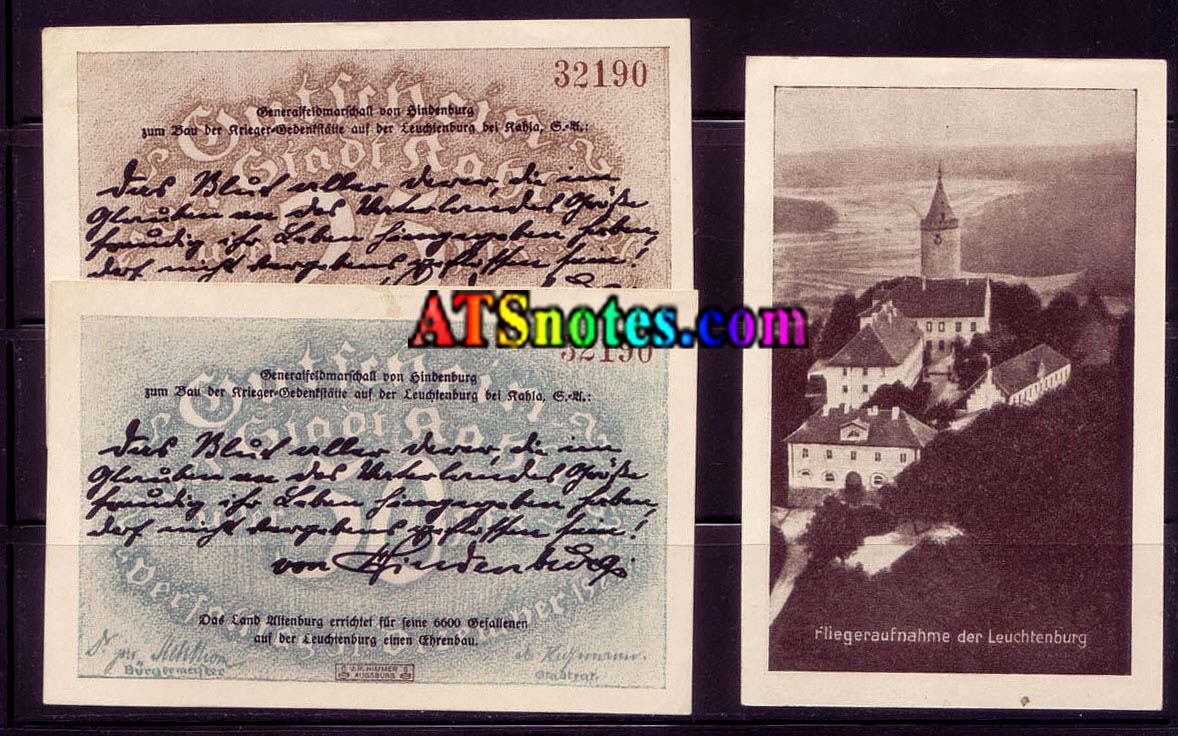 32190
Generalfeldmarschall von Hindenburg
zum Bau der Krieger-Gedenkstätte auf der Leuchtenburg bei Kahla, S.-A.:
Gutschein
Stadt Ka
Das Blut aller derer, die im
Glauben an des Vaterlandes Größe
freudig ihr Leben hingegeben haben,
darf nicht vergebens geflossen sein!
ATSnotes.com
32190
Generalfeldmarschall von Hindenburg
zum Bau der Krieger-Gedenkstätte auf der Leuchtenburg bei Kahla, S.-A.:
Gutschein
Stadt Ka
Das Blut aller derer, die im
Glauben an des Vaterlandes Größe
freudig ihr Leben hingegeben haben,
darf nicht vergebens geflossen sein!
50
von Hindenburg
Das Land Altenburg errichtet für seine 6600 Gefallenen
auf der Leuchtenburg einen Ehrenbau.
Dr. jur.
Bürgermeister
J.P. HIMMER
AUGSBURG
Stadtrat
Fliegeraufnahme der Leuchtenburg